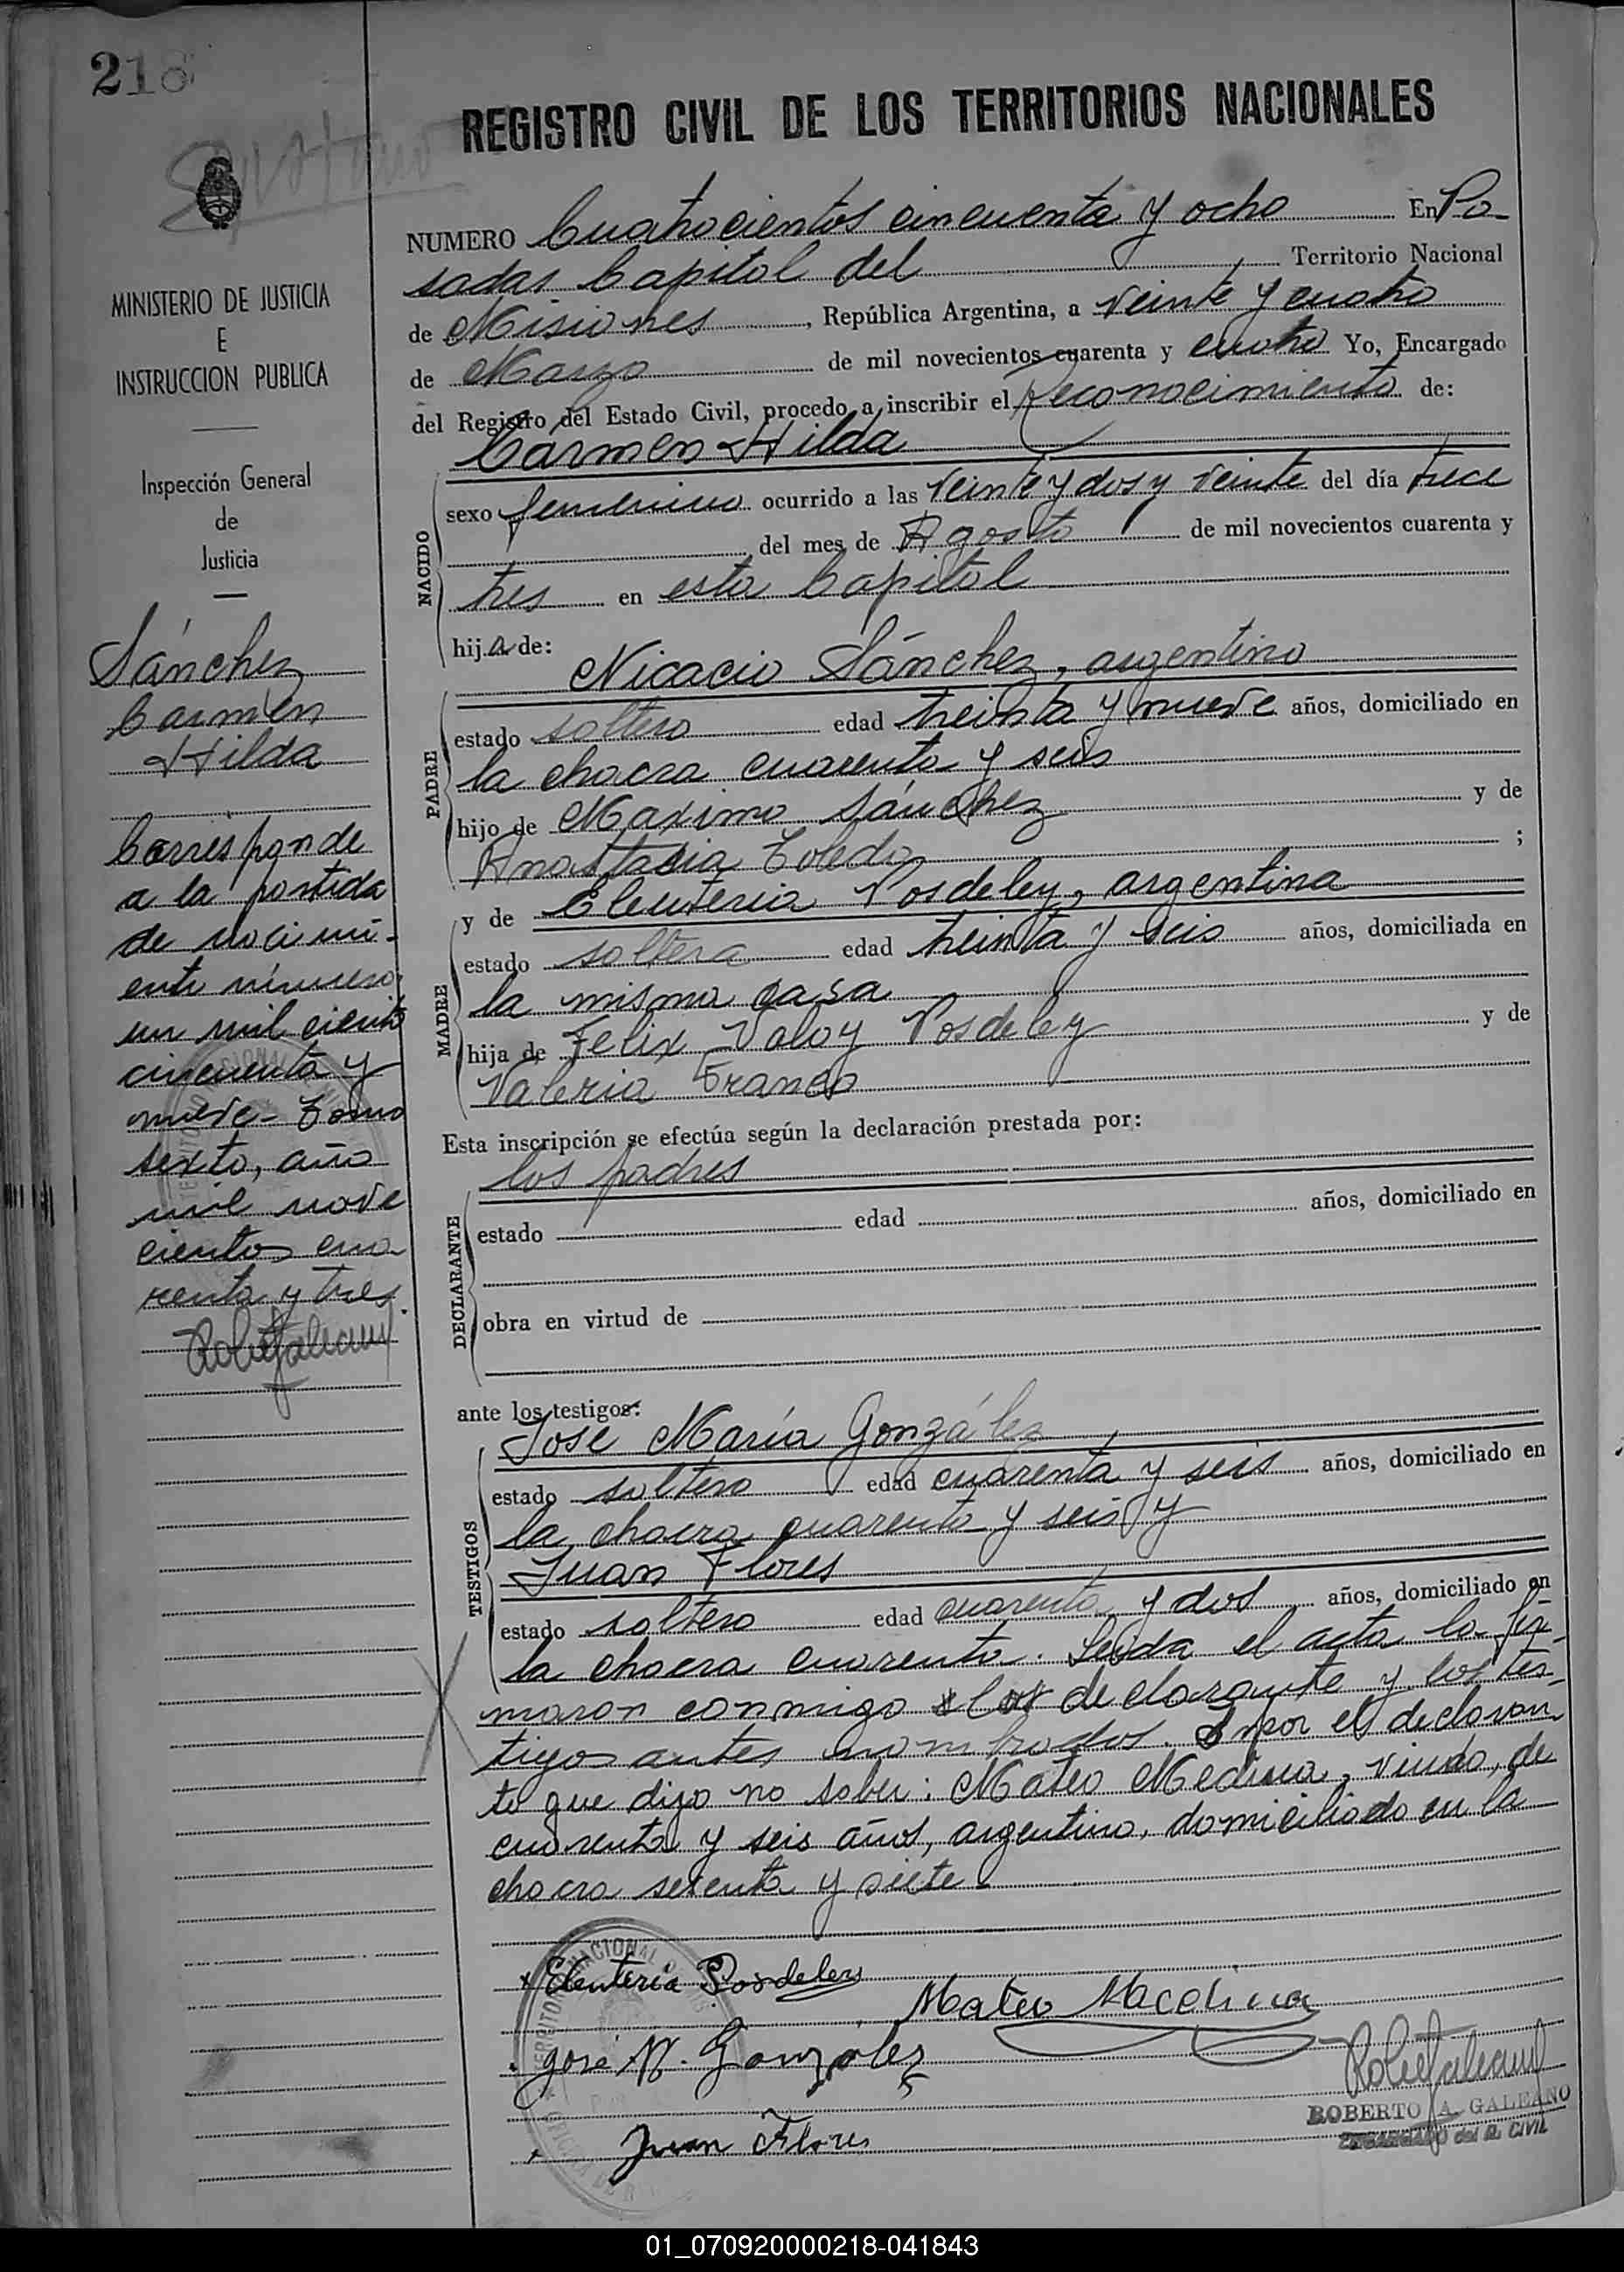 218
REGISTRO CIVIL DE LOS TERRITORIOS NACIONALES
MINISTERIO DE JUSTICIA
E
INSTRUCCION PUBLICA
Inspección General
de
Justicia
Sánchez
Carmen
Hilda
Corresponde
a la partida
de nacimi-
ento número
un mil ciento
cincuenta y
nueve - Tomo
sexto, año
mil nove
cientos cua
renta y tres.
NUMERO Cuatrocientos cincuenta y ocho En Po-
sadas Capital del Territorio Nacional
de Misiones, República Argentina, a veinte y cuatro
de Marzo de mil novecientos cuarenta y cuatro Yo, Encargado
del Registro del Estado Civil, procedo a inscribir el Reconocimiento de:
Carmen Hilda
NACIDO
sexo femenino ocurrido a las veinte y dos y veinte del día trece
del mes de Agosto de mil novecientos cuarenta y
tres en esta Capital
hija de:
Nicacio Sánchez, argentino
PADRE
estado soltero edad treinta y nueve años, domiciliado en
la chacra cuarenta y seis
hijo de Maximo Sánchez y de
Anastacia Toledo ;
y de Eleuteria Posdeley, argentina
MADRE
estado soltera edad treinta y seis años, domiciliada en
la misma casa
hija de Felix Valoy Posdeley y de
Valeria Franco
Esta inscripción se efectúa según la declaración prestada por:
los padres
DECLARANTE
estado edad años, domiciliado en
obra en virtud de
ante los testigos:
José María González
TESTIGOS
estado soltero edad cuarenta y seis años, domiciliado en
la chacra cuarenta y seis y
Juan Flores
estado soltero edad cuarenta y dos años, domiciliado en
la chacra cuarenta. Leida el acta la fir-
maron conmigo declarante y los tes-
tigos antes nombrados. por el declaran-
te que dijo no saber: Mateo Medina, viudo, de
cuarenta y seis años, argentino, domiciliado en la
chacra setenta y siete
Eleuteria Posdeley
Mateo Macdina
José M. González
Juan Flores
ROBERTO A. GALEANO
ENCARGADO del R. CIVIL
01_070920000218-041843